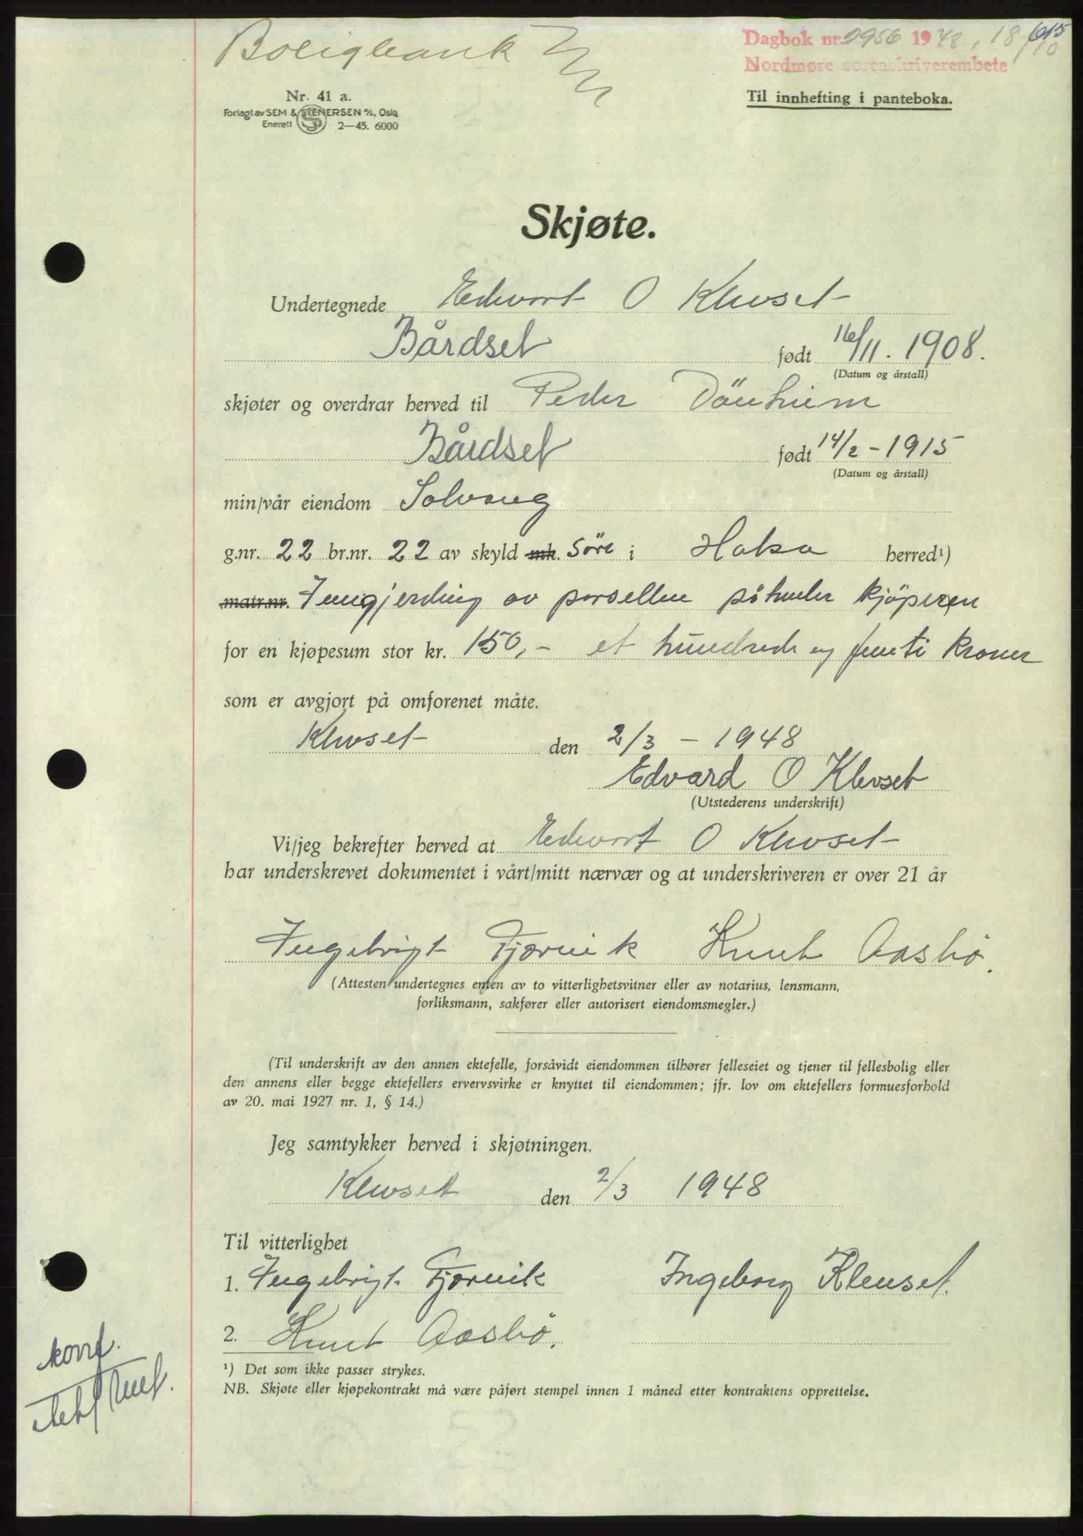 Boligbank
Dagbok nr. 2956 1948, 18/10
Nordmøre sorenskriverembete
615
Nr. 41 a.
Forlagt av SEM & STENERSEN A/S, Oslo
Enerett 2-45. 6000
Til innhefting i panteboka.
Skjøte.
Undertegnede Edvart O Klevset
Bårdset født 16/11. 1908.
(Datum og årstall)
skjøter og overdrar herved til Peder Dönheim
Bårdset født 14/2 - 1915
(Datum og årstall)
min/vår eiendom Solvang
g.nr. 22 br.nr. 22 av skyld mk. Söre i Halsa herred¹)
matr.nr. Inngjerding av parsellen påhviler kjöperen
for en kjøpesum stor kr. 150,- et hundrede og femti kroner
som er avgjort på omforenet måte.
Klevset den 2/3 - 1948
Edvard O Klevset
(Utstederens underskrift)
Vi/jeg bekrefter herved at Edvart O Klevset
har underskrevet dokumentet i vårt/mitt nærvær og at underskriveren er over 21 år
Ingebrigt Tjørvik Knut Aasbø.
(Attesten undertegnes enten av to vitterlighetsvitner eller av notarius, lensmann,
forliksmann, sakfører eller autorisert eiendomsmegler.)
(Til underskrift av den annen ektefelle, forsåvidt eiendommen tilhører felleseiet og tjener til fellesbolig eller
den annens eller begge ektefellers ervervsvirke er knyttet til eiendommen; jfr. lov om ektefellers formuesforhold
av 20. mai 1927 nr. 1, § 14.)
Jeg samtykker herved i skjøtningen.
Klevset den 2/3 1948
Til vitterlighet
1. Ingebrigt Tjørvik Ingeborg Klevset.
2. Knut Aasbø.
¹) Det som ikke passer strykes.
NB. Skjøte eller kjøpekontrakt må være påført stempel innen 1 måned etter kontraktens opprettelse.
konf.